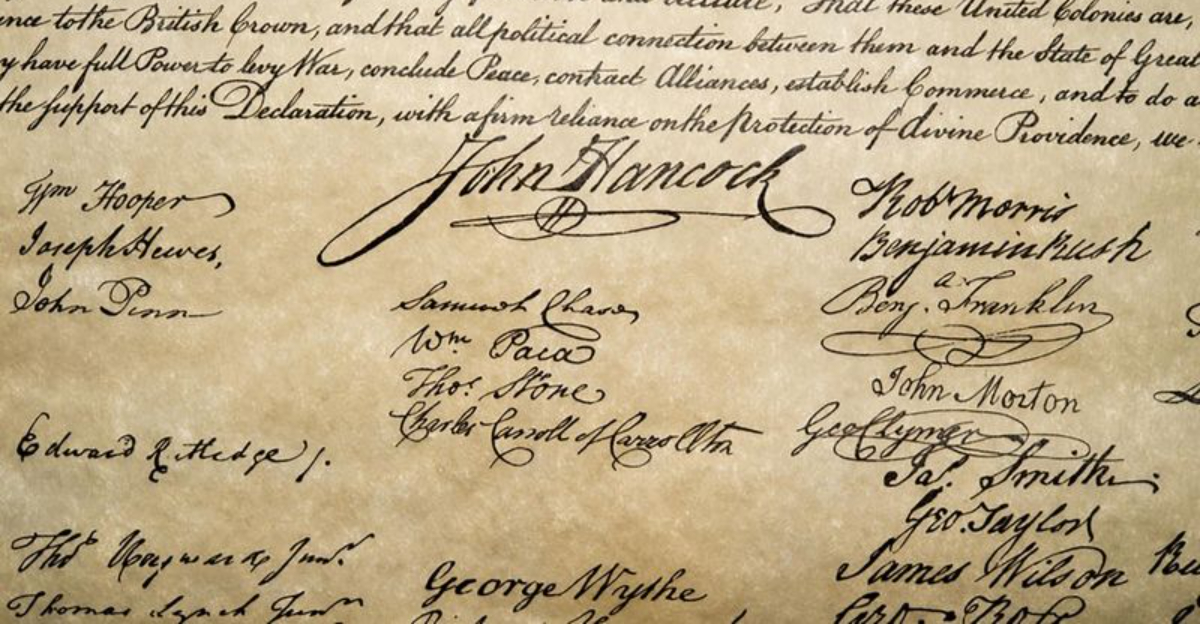 these United Colonies are,
nce to the British Crown, and that all political connection between them and the State of Great
y have full Power to levy War, conclude Peace, contract Alliances, establish Commerce, and to do a
the support of this Declaration, with a firm reliance on the protection of divine Providence, we
John Hancock
Wm Hooper
Joseph Hewes,
John Penn
Edward Rutledge /.
Thos Heyward Junr.
Thomas Lynch Junr
Samuel Chase
Wm. Paca
Thos. Stone
Charles Carroll of Carrollton
George Wythe
Robt Morris
Benjamin Rush
Benja. Franklin
John Morton
Geo Clymer
Jas. Smith
Geo. Taylor
James Wilson
Geo. Ross